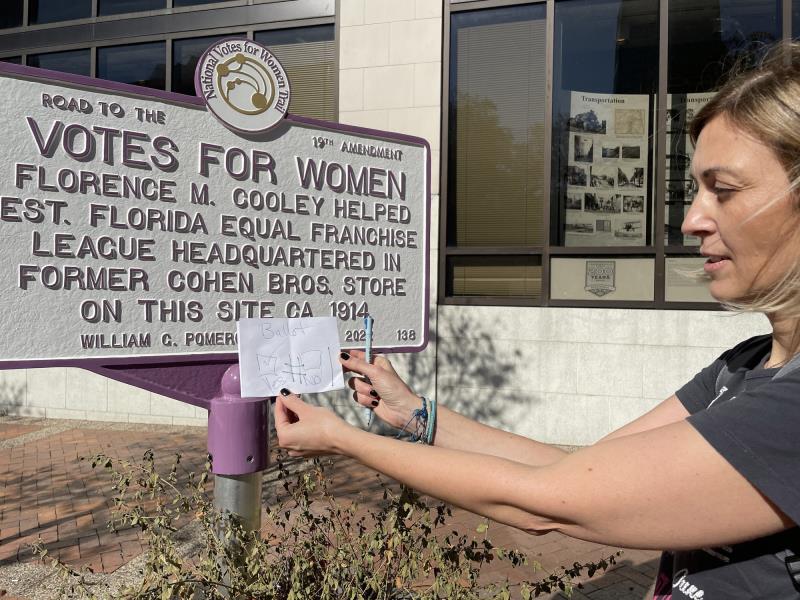 National Votes for Women Trail
ROAD TO THE
VOTES FOR WOMEN
19TH AMENDMENT
FLORENCE M. COOLEY HELPED
EST. FLORIDA EQUAL FRANCHISE
LEAGUE HEADQUARTERED IN
FORMER COHEN BROS. STORE
ON THIS SITE CA. 1914
WILLIAM G. POMER
202
138
Ballot
NO
Transportation
Transportation
200
YEARS